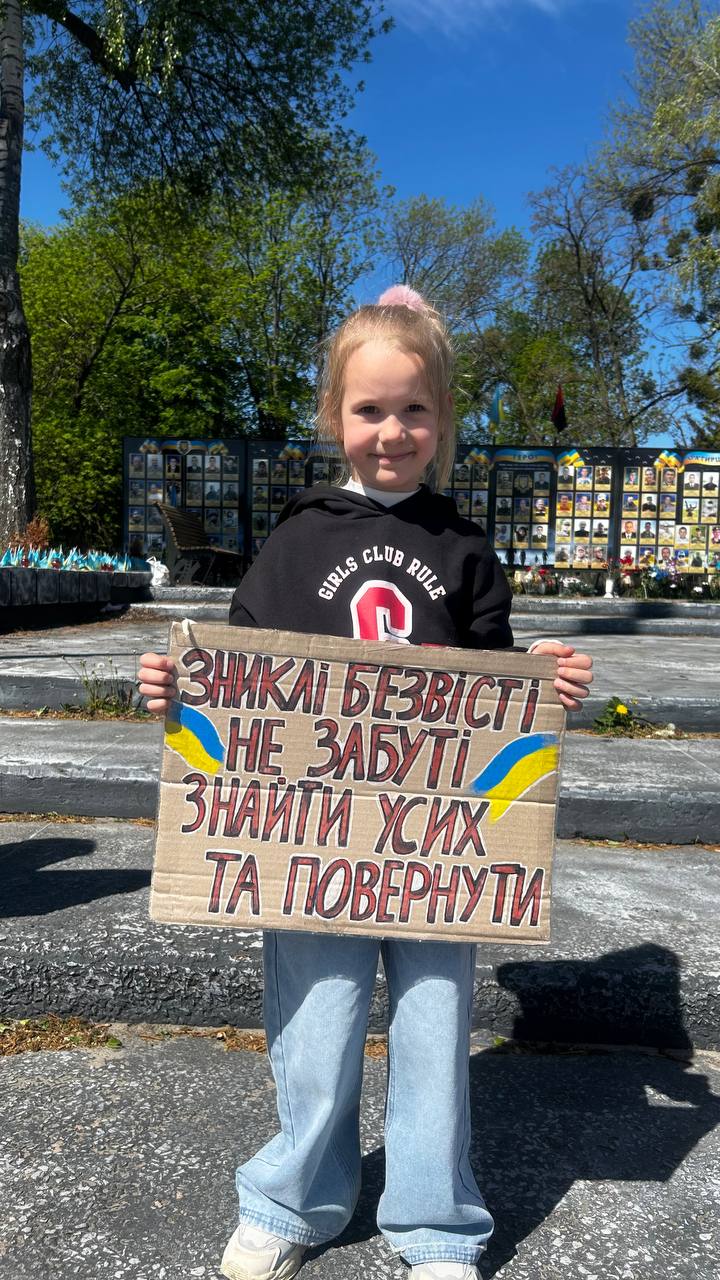 ГЕРОЇ
GIRLS CLUB RULE
G
ЗНИКЛІ БЕЗВІСТІ
НЕ ЗАБУТІ
ЗНАЙТИ УСИХ
ТА ПОВЕРНУТИ